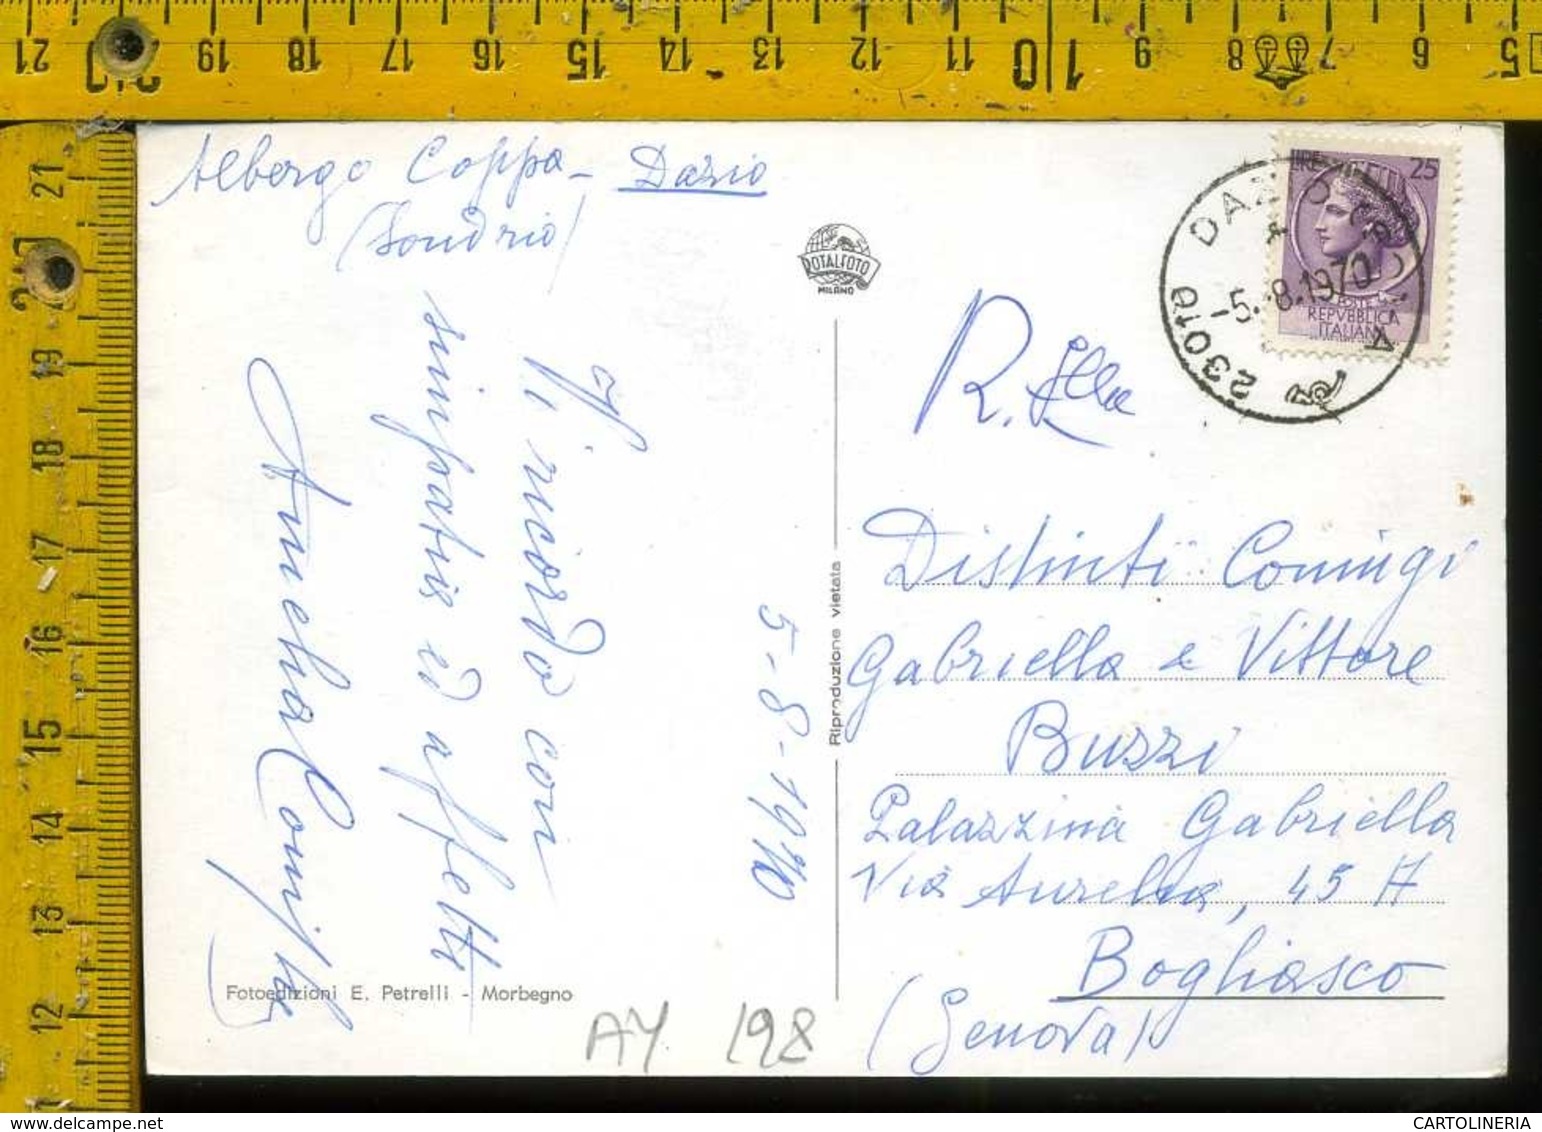 Albergo Coppa - Dazio
(Sondrio)
Vi ricordo con
simpatia ed affetto
5-8-1970
ROTALFOTO
MILANO
Riproduzione vietata
Fotoedizioni E. Petrelli - Morbegno
AY 198
LIRE 25
POSTE
REPVBBLICA
ITALIANA
23010 DAZIO
-5.-8.1970
Distinti Coniugi
Gabriella e Vittore
Buzzi
Palazzina Gabriella
Via Aurelia, 45 A
Bogliasco
(Genova)
21 20 19 18 17 16 15 14 13 12 11 10 9 8 7 6 5
21
20
19
18
17
16
15
14
13
12
CARTOLINERIA